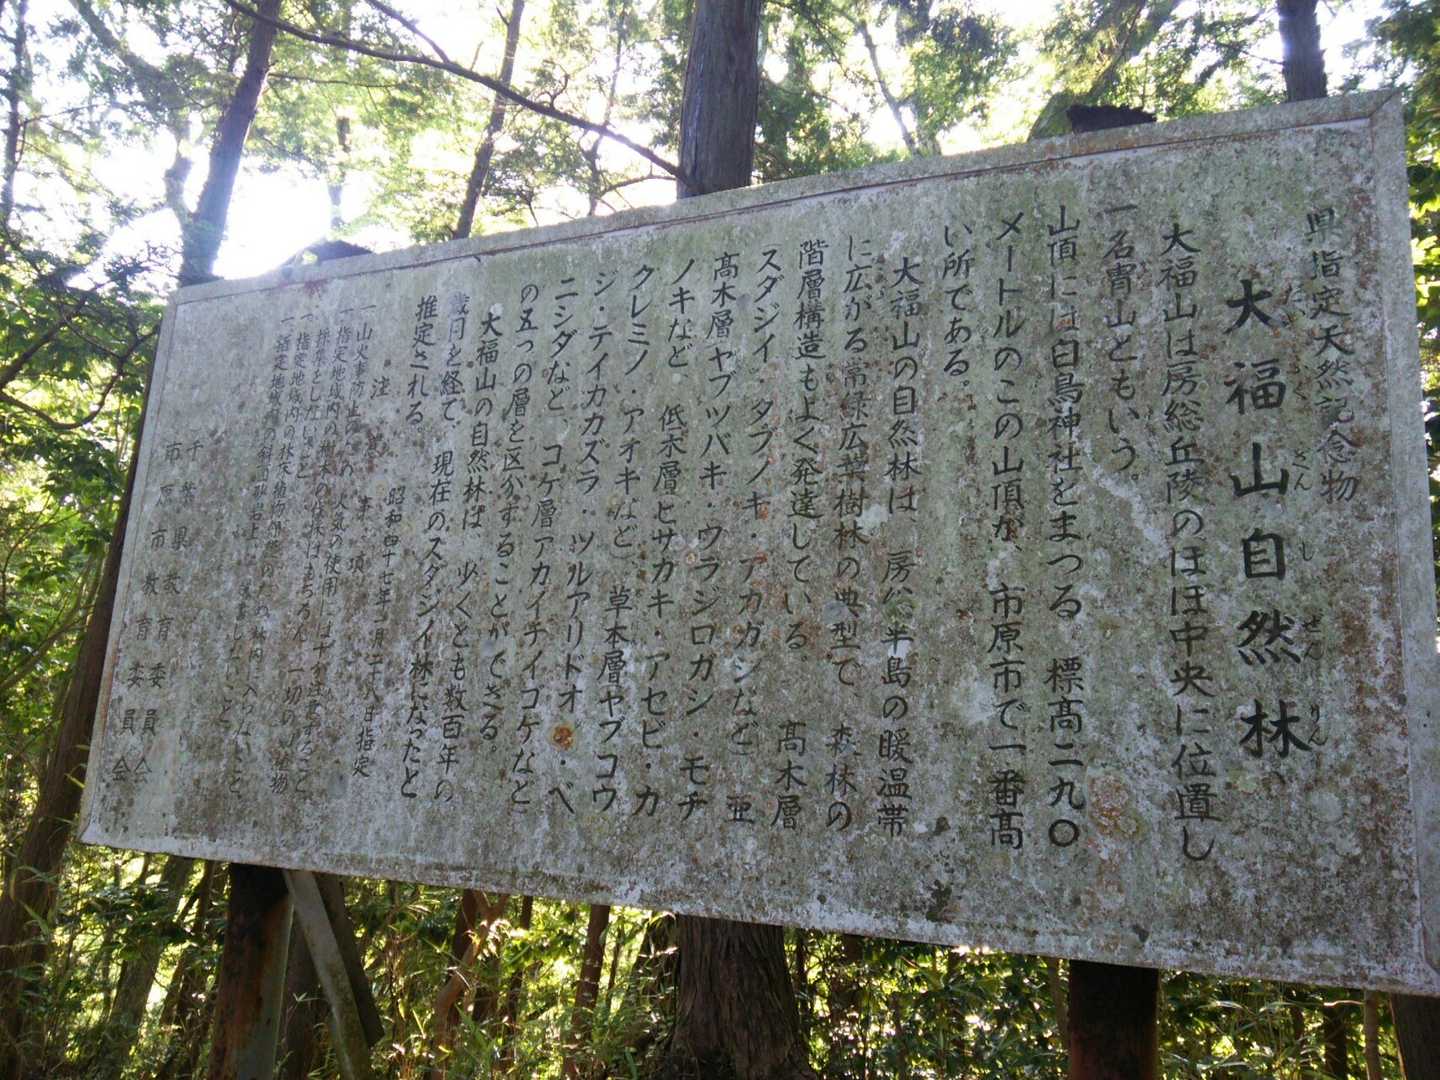 県指定天然記念物
大福山自然林
だいふくさんしぜんりん
大福山は房総丘陵のほぼ中央に位置し
一名冑山ともいう。
山頂には白鳥神社をまつる 標高二九〇
メートルのこの山頂が、市原市で一番高
い所である。
大福山の自然林は、房総半島の暖温帯
に広がる常緑広葉樹林の典型で、森林の
階層構造もよく発達している。 高木層
スダジイ・タブノキ・アカガシなど 亜
高木層ヤブツバキ・ウラジロガシ・モチ
ノキなど 低木層ヒサカキ・アセビ・カ
クレミノ・アオキなど 草本層ヤブコウ
ジ・テイカカズラ・ツルアリドオ・ベ
ニシダなど、コケ層アカイチイゴケなど
の五つの層を区分することができる。
大福山の自然林は、少くとも数百年の
歳月を経て、現在のスダジイ林になったと
推定される。
昭和四十七年 月二十八日指定
注 事項
一 山火事防止 の 火気の使用には十分注意すること
一 指定地域内の樹木の伐採はもちろん、一切の 植物
採集をしないこと
一 指定地域内の林床植物 の 林内に入らないこと
一 指定地域 の斜面 岩上 しないこと
千葉県教育委員会
市原市教育委員会